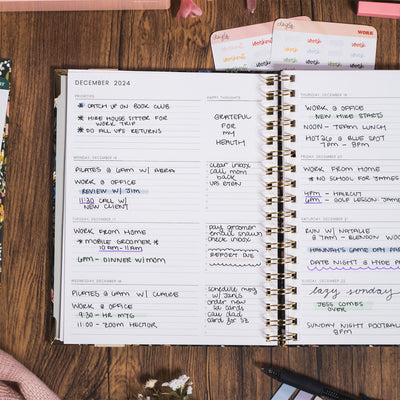 DECEMBER 2024
PRIORITIES
* CATCH UP ON BOOK CLUB
* HIRE HOUSE SITTER FOR
WORK TRIP
* DO ALL UPS RETURNS
HAPPY THOUGHTS
GRATEFUL
FOR
MY
HEALTH
MONDAY, DECEMBER 16
PILATES @ 6AM W/ ABRA
WORK @ OFFICE
REVIEW W/ JIM
11:30 CALL W/
NEW CLIENT
clear inbox
call mom
back
UPS
TUESDAY, DECEMBER 17
WORK FROM HOME
* MOBILE GROOMER *
10AM-11AM
6PM - DINNER W/MOM
pay groomer
email shawn
check inbox
REPORT DUE
WEDNESDAY, DECEMBER 18
PILATES @ 6AM W/ CLAIRE
WORK @ OFFICE
9:30 - HR MTG
11:00 - ZOOM HECTOR
schedule mtg
w/ Janis
order new
id cards
call dad
card for SZ
THURSDAY, DECEMBER 19
WORK @ OFFICE
NEW HIRE STARTS
NOON - TEAM LUNCH
@ BLUE SPOT
7PM - 9PM
FRIDAY, DECEMBER 20
WORK FROM HOME
* NO SCHOOL FOR JAMES
4PM - HAIRCUT
6PM - GOLF LESSON: JAMES
SATURDAY, DECEMBER 21
RUN W/ NATALIE
@ 7AM - BLENDON WOOD
HANNAH'S GAME DAY
DATE NIGHT @ HYDE PA
SUNDAY, DECEMBER 22
lazy sunday
JESS COMES
OVER
SUNDAY NIGHT FOOTBALL
8PM
WORK